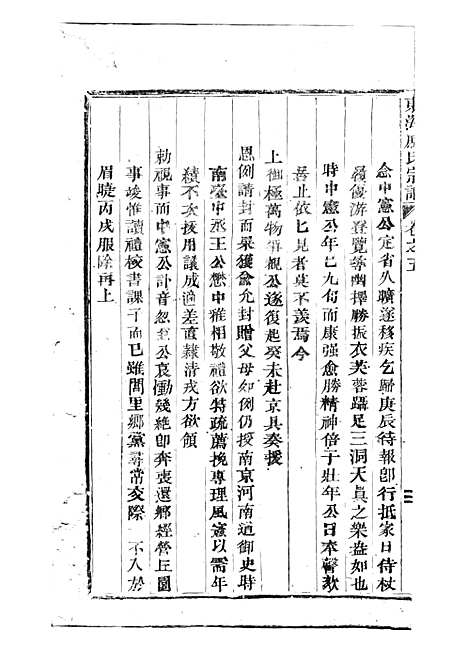 東海 氏宗譜 卷之五
念中憲公定省久曠遂移疾乞歸庚辰待報卽行抵家日侍杖
履優游登覽尋幽擇勝振衣芙蓉躡足三洞天眞之樂盎如也
時中憲公年巳九旬而康强愈勝精神倍于壯年公日奉謦欬
善止依匕見者莫不羨焉今
上御極萬物 覩公遂復起癸未赴京具奏援
恩例請封而果獲兪允封贈父母如例仍授南京河南道御史時
南臺中丞王公懋中雅相敬禮欲特疏薦挽專理風憲以需年
績不次擢用議成適差直隸清戎方欲領
勅視事而中憲公訃音忽至公哀慟幾絶卽奔喪還鄉經營丘園
事竣惟讀禮校書課子而巳雖閭里鄉黨尋常交際 不入於
眉睫丙戌服除再上